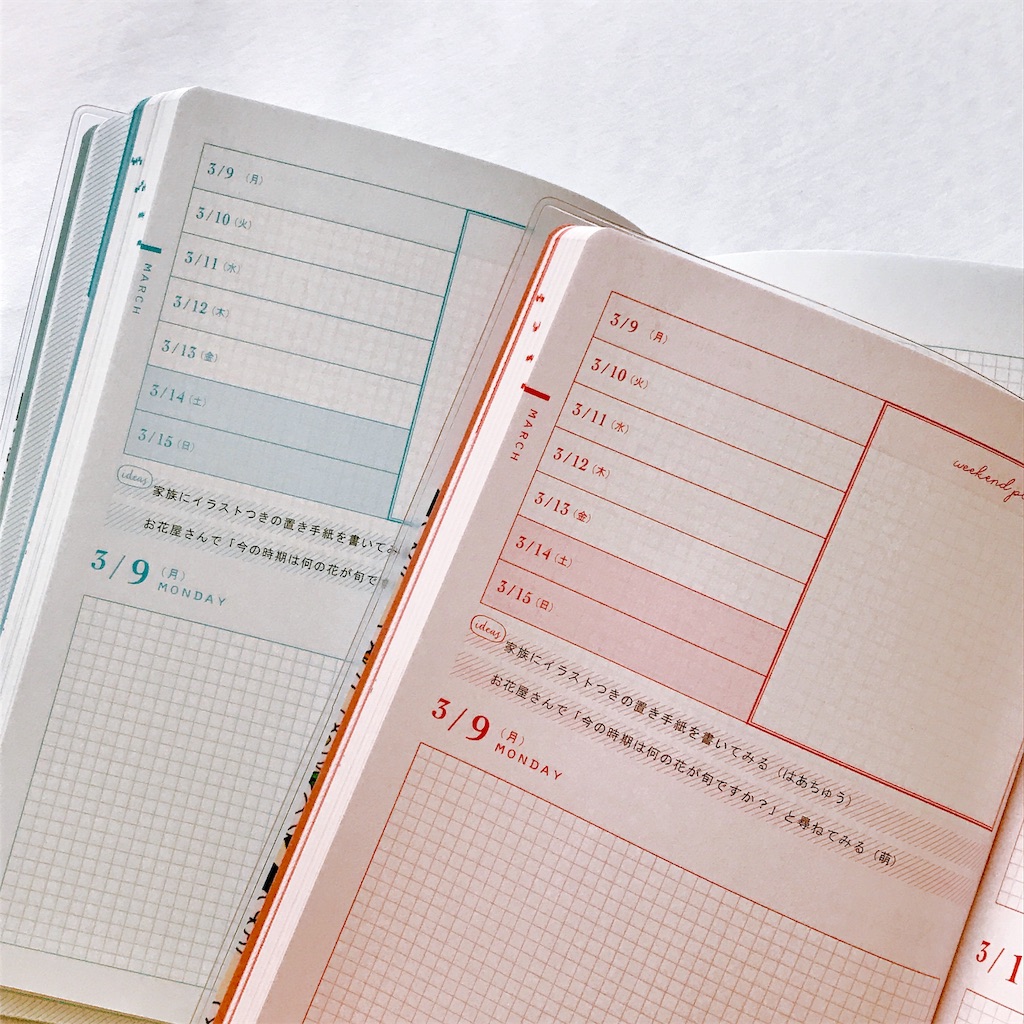 3/9 (月)
3/10 (火)
3/11 (水)
3/12 (木)
3/13 (金)
3/14 (土)
3/15 (日)
MARCH
ideas
家族にイラストつきの置き手紙を書いてみ
お花屋さんで「今の時期は何の花が旬で
3/9 (月)
MONDAY
3/9 (月)
3/10 (火)
3/11 (水)
3/12 (木)
3/13 (金)
3/14 (土)
3/15 (日)
MARCH
weekend
ideas
家族にイラストつきの置き手紙を書いてみる（はあちゅう）
お花屋さんで「今の時期は何の花が旬ですか？」と尋ねてみる（萌）
3/9 (月)
MONDAY
3/1